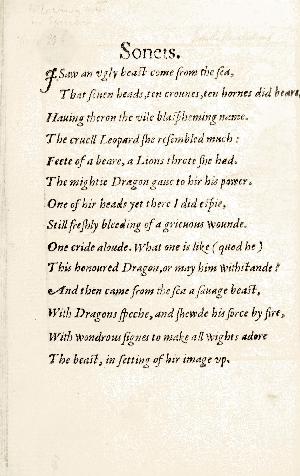 Sonets.
I Saw an vgly beast come from the sea,
That seuen heads, ten crounes, ten hornes did beare,
Hauing theron the vile blaspheming name.
The cruell Leopard she resembled much:
Feete of a beare, a Lions throte she had.
The mightie Dragon gaue to hir his power.
One of hir heads yet there I did espie,
Still freshly bleeding of a grieuous wounde.
One cride aloude. What one is like (quod he)
This honoured Dragon, or may him withstande?
And then came from the sea a sauage beast,
With Dragons speche, and shewde his force by fire,
With wondrous signes to make all wights adore
The beast, in setting of hir image vp.